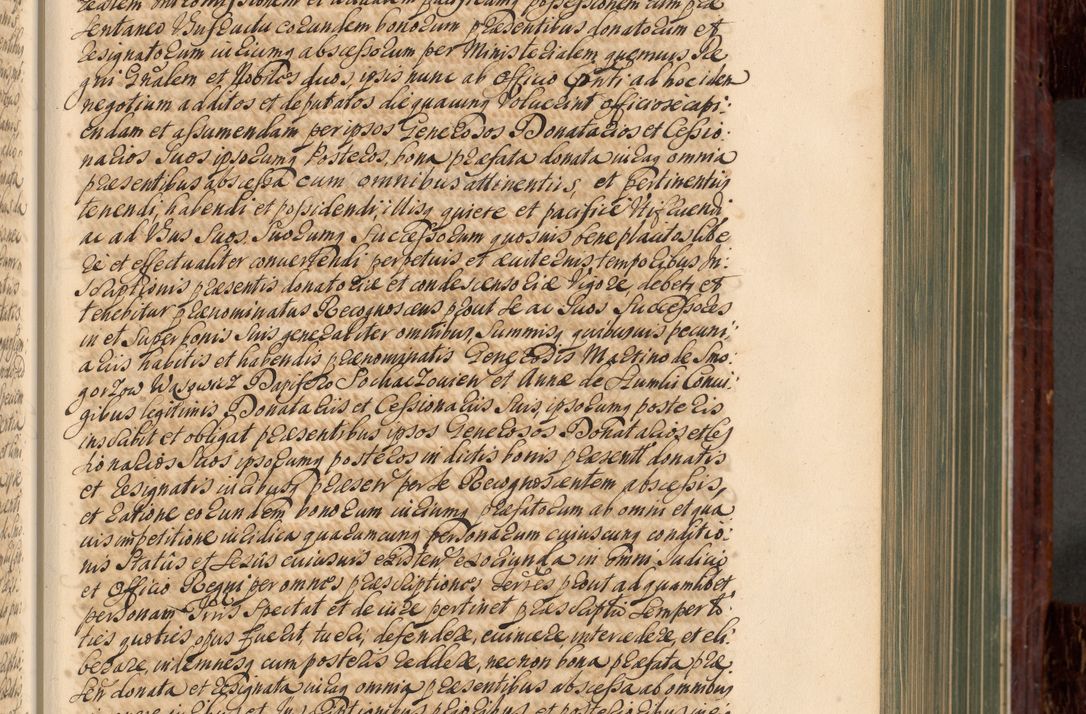 realem intromissionem et actualem pacificamq possessionem cum præ
sentaneo Ususfructu eorundem bonorum præsentibus donatorum et
resignatorum iuriumq abscessorum per Ministerialem quemvis Re
gni Gnalem et Nobiles duos, ipsis nunc ab Officio Pnti ad hoc idem
negotium additos et deputatos die quacunq Voluerint officiose capi:
endam et assumendam per ipsos Generosos Donatarios et Cessio:
narios Suos ipsorumq Posteros, bona præfata donata iuraq omnia
præsentibus abscessa cum omnibus attinentiis, et pertinentiis
tenendi, habendi et possidendi, illisq quiete et pacifice Utifruendi
ac ad Usus Suos, Suorumq Successorum quosvis beneplacitos libe
re et effectualiter convertendi perpetuis et æviternis temporibus In:
scriptionis præsentis donatoriæ et condescensoriæ Vigore, debet et
tenebitur prænominatus Recognoscens prout se ac Suos Successores
in et Super bonis Suis generaliter omnibus, Summisq quibusvis pecuni:
ariis habitis et habendis prænominatis Generosis Martino de Smo:
gorzow Wąsowicz Dapifero Sochaczovien et Annæ de Humbi Coniu:
gibus legitimis Donatariis et Cessionariis Suis, ipsorumq posteris
inscribit et obligat præsentibus ipsos Generosos Donatarios et Ces
sionarios Suos ipsorumq posteros in dictis bonis præsent donatis
et resignatis iuribusq præsen per se Recognoscentem abscessis,
et ratione eorundem bonorum iuriumq præfatorum ab omni et qua
vis impetitione iuridica quarumcunq personarum cuiuscunq conditio:
nis Status et Sexus cuiusvis existen exoriunda in omni Judicio
et Officio Regni per omnes præscriptiones terres prout ad quamlibet
personam Iuris Spectat et de iure pertinet præscriptis Semper to:
ties quoties opus fuerit, tueri, defendere, evincere, intercedere, et eli:
berare, indemnesq cum posteris reddere, nec non bona præfata præ
sen donata et resignata iuraq omnia præsentibus abscessa ab omnibus